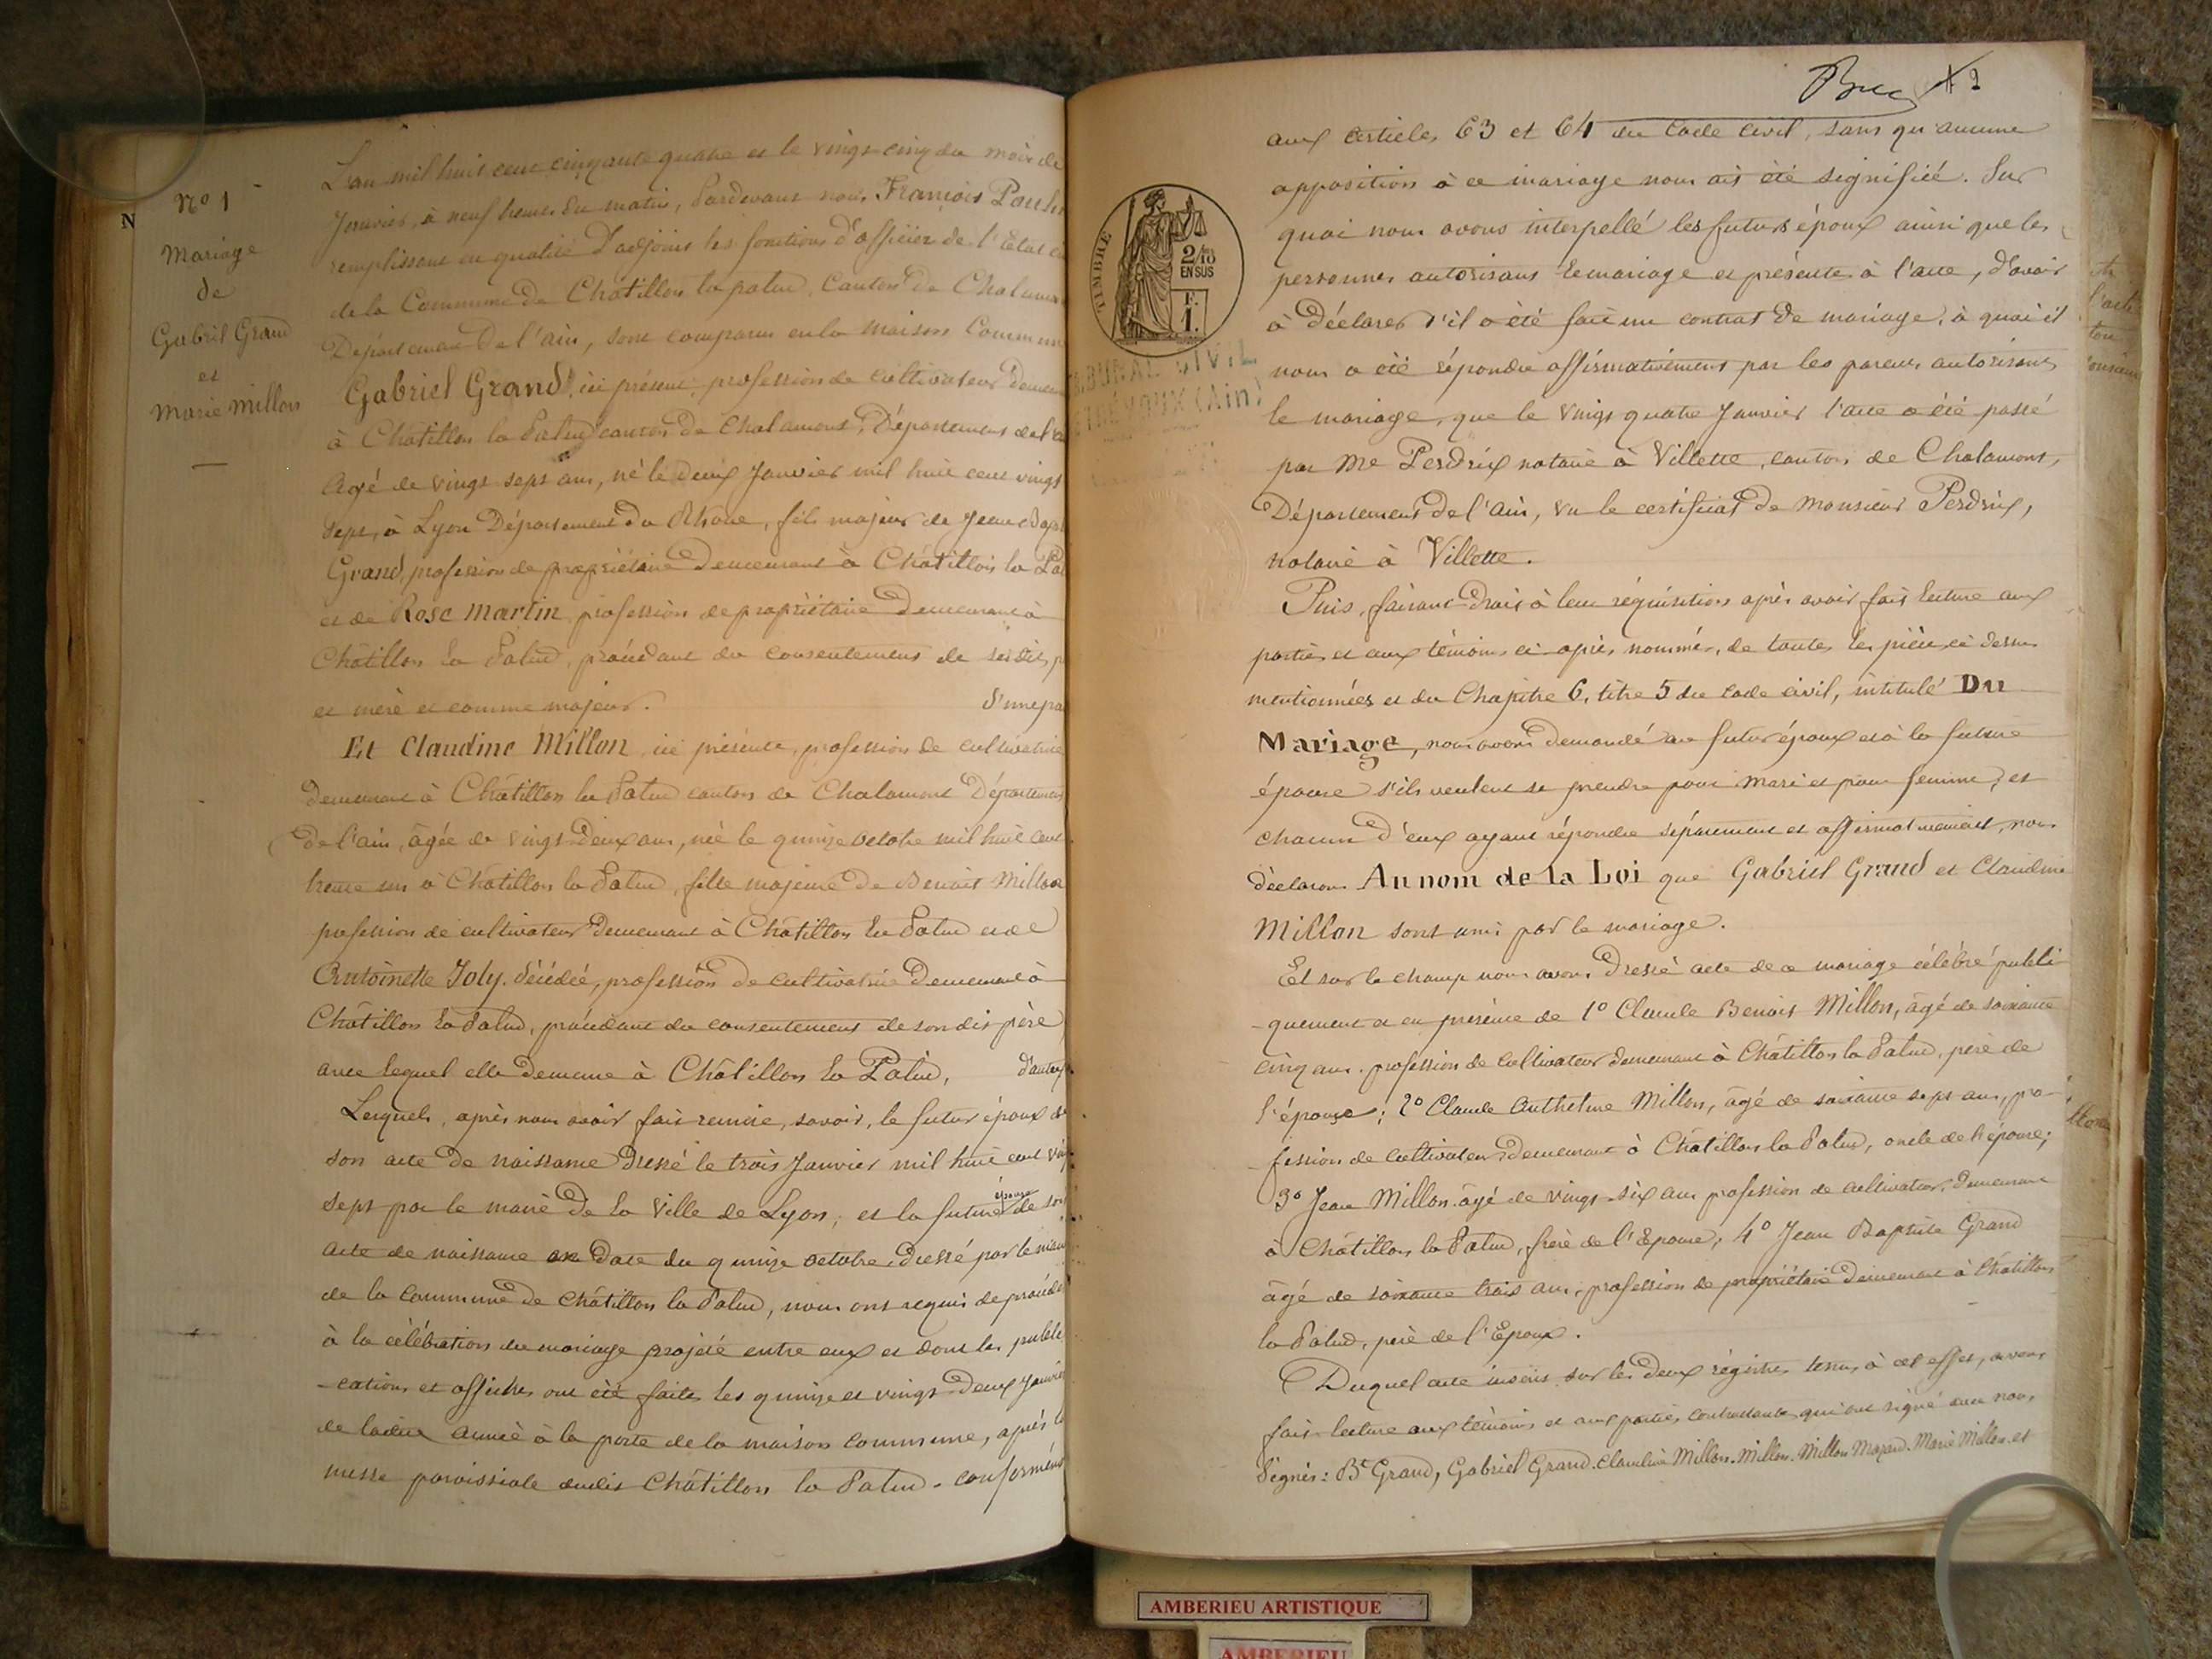 N
No 1
Mariage
de
Gabriel Grand
et
Marie Millon
L'an mil huit cent cinquante quatre et le vingt cinq du mois de
Janvier, à neuf heures du matin, Pardevant nous, François
remplissant en qualité d'adjoint les fonctions d'officier de l'Etat
de la Commune de Châtillon la palud, Canton de
Département de l'ain, sont comparus en la maison Commune
Gabriel Grand, ici présent, profession de cultivateur
à Châtillon la Palud canton de Chalamont, Département de
Agé de vingt sept ans, né le deux Janvier mil huit cent vingt
sept, à Lyon Département du Rhône, fils majeur de Jean
Grand, profession de propriétaire demeurant à Châtillon la
et de Rose Martin profession de propriétaire demeurant à
Châtillon la Palud, procédant du consentement de ses dits
et mère et comme majeur. D'une
Et Claudine Millon ici présente, profession de cultivatrice
demeurant à Châtillon la Palud canton de Chalamont Département
de l'ain, âgée de vingt deux ans, née le quinze octobre mil huit cent
trente un à Châtillon la Palud, fille majeure de Benoit Millon
profession de cultivateur demeurant à Châtillon la Palud et de
Antoinette Joly, décédée, profession de cultivatrice demeurant à
Châtillon la Palud, procédant du consentement de son dit père
avec lequel elle demeure à Châtillon la Palud,
Lesquels, après nous avoir fait remise, savoir, le futur époux de
son acte de naissance dressé le trois Janvier mil huit cent
sept par le maire de la Ville de Lyon, et la future épouse de son
acte de naissance en date du quinze octobre, dressé par le maire
de la commune de Châtillon la Palud, nous ont requis de procéder
à la célébration du mariage projeté entre eux et dont les publi
-cations et affiches ont été faites les quinze et vingt deux Janvier
de ladite année à la porte de la maison commune, après la
messe paroissiale dudit Châtillon la Palud. conformément
2
aux articles 63 et 64 du Code civil, sans qu'aucune
opposition à ce mariage nous ait été signifiée. Sur
quoi nous avons interpellé les futurs époux ainsi que les
personnes autorisant le mariage et présente à l'acte, d'avoir
à déclarer s'il a été fait un contrat de mariage, à quoi il
nous a été répondu affirmativement par les parens autorisant
le mariage, que le vingt quatre Janvier l'acte a été passé
par Me Perdrix notaire à Villette, canton de Chalamont,
Département de l'ain, vu le certificat de Monsieur Perdrix,
notaire à Villette.
Puis, faisant droit à leur réquisition après avoir fait lecture aux
parties et aux témoins ci-après nommés, de toutes les pièces ci dessus
mentionnées et du Chapitre 6, titre 5 du Code civil, intitulé Du
Mariage, nous avons demandé au futur époux et à la future
épouse s'ils veulent se prendre pour mari et pour femme, et
chacun d'eux ayant répondu séparement et affirmativement, nous
déclarons Au nom de la Loi que Gabriel Grand et Claudine
Millon sont unis par le mariage.
Et sur le champ nous avons dressé acte de ce mariage célébré publi
-quement et en présence de 1o Claude Benoit Millon, âgé de soixante
cinq ans, profession de cultivateur demeurant à Châtillon la Palud, père de
l'épouse; 2o Claude Anthelme Millon, âgé de soixante sept ans, pro-
fession de cultivateur demeurant à Châtillon la Palud, oncle de l'épouse;
3o Jean Millon âgé de vingt-six ans profession de cultivateur, demeurant
à Châtillon la Palud, frère de l'Epouse; 4o Jean Baptiste Grand
âgé de soixante trois ans, profession de propriétaire demeurant à Châtillon
la Palud, père de l'Epoux.
Duquel acte inscris sur les deux registres tenus à cet effet, avons
fait lecture aux témoins et aux parties contractantes qui ont signé avec nous
Signés: Bte Grand, Gabriel Grand. Claudine Millon. Millon. Millon Mazard. Marie Millon. et
TIMBRE
2/10
EN SUS
F.
1.
TRIBUNAL CIVIL
TRÉVOUX (Ain)
AMBERIEU ARTISTIQUE
AMBERIEU